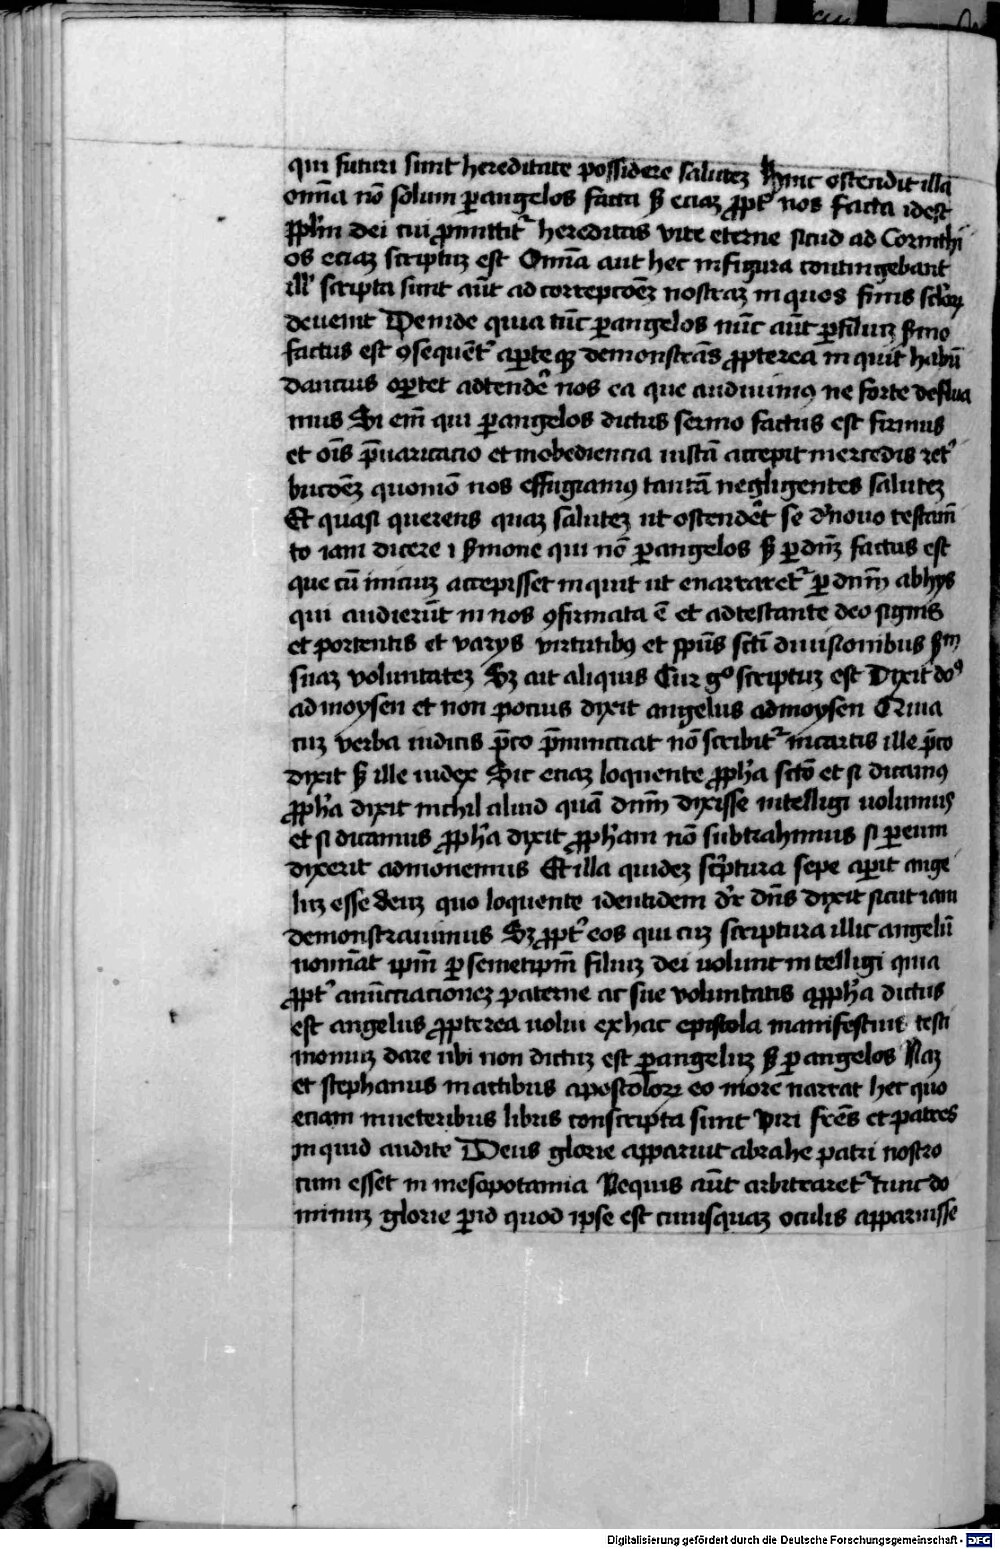 qui futuri sunt hereditate possidere salutez hinc ostendit illa
om̄ia nō solum ꝑ angelos facta sꝫ eciaz ꝓpt' nos facta idest
ppl'm dei cui ꝓmittit' hereditas vite eterne sicud ad Corinthi
os eciaz scriptuz est Om̄ia aut hec in figura contingebant
ill' scripta sunt aūt ad correpcōez nostraz in quos finis sc'lorꝝ
devenit Deinde quia tūc ꝑ angelos nūc aūt ꝑ filiuz s'mo
factus est ꝯsequent' aꝑteqꝫ demonstrās ꝓpterea inquit habū
dancius oꝑtet adtendē nos ea que audiuimꝰ ne forte deflua
mus Si em̄ qui ꝑ angelos dictus sermo factus est firmus
et oīs p̄uaricacio et inobediencia iustā accepit mercedis ret'
bucōez quomō nos effugiamꝰ tantā negligentes salutez
Et quasi querens quaz salutez ut ostendēt se d' nouo testam̄
to iam dicere i s'mone qui nō ꝑ angelos sꝫ ꝑ dn̄z factus est
que cū iniciuz accepisset inquit ut enarraret' ꝑ dn̄m ab hys
qui audierūt in nos ꝯfirmata ē et adtestante deo signis
et portentis et varys virtutibꝰ et spūs scti diuisionibus s'm
suaz voluntatez Sꝫ ait aliquis Cur gͦ scriptuz est Dixit doꝰ
ad moysen et non pocius dixit angelus ad moysen Quia
cuz verba iudicis p̄co p̄nuncciat nō scribit' in cartis ille p̄co
dixit sꝫ ille iudex Sic eciaz loquente ꝓph'a sctō et si dicamꝰ
ꝓph'a dixit nichil aliud quā dn̄m dixisse intelligi uolumus
et si dicamus ꝓph'a dixit ꝓph'am nō subtrahimus si ꝑ eum
dixerit admonemus Et illa quidez sc'ptura sepe aꝑit ange
luz esse deuz quo loquente identidem d'r dn̄s dixit sicut iam
demonstrauimus Sꝫ ꝓpt' eos qui cuz scriptura illic angelū
nomīat ipm̄ ꝑ semetipm̄ filiuz dei uolunt intelligi quia
ꝓpt' anūcciacionez paterne ac sue voluntatis a ꝓph'a dictus
est angelus ꝓpterea uolui ex hac epistola manifestius testi
moniuz dare ubi non dictuz est ꝑ angeluz sꝫ ꝑ angelos Naz
et stephanus in actibus apostolorꝝ eo more narrat hec quo
eciam in ueteribus libris conscripta sunt Viri fr̄es et patres
inquid audite Deus glorie apparuit abrahe patri nostro
cum esset in mesopotamia Nequis aūt arbitraret' tunc do
minuz glorie ꝑ id quod ipse est cuiusquaz oculis apparuisse
Digitalisierung gefördert durch die Deutsche Forschungsgemeinschaft - DFG